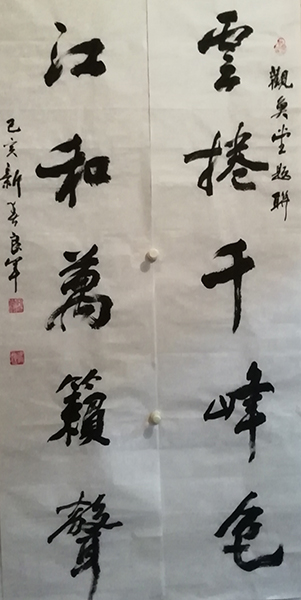 觀奐堂撰聯
雲捲千峰色
江和萬籟聲
己亥新春良軍